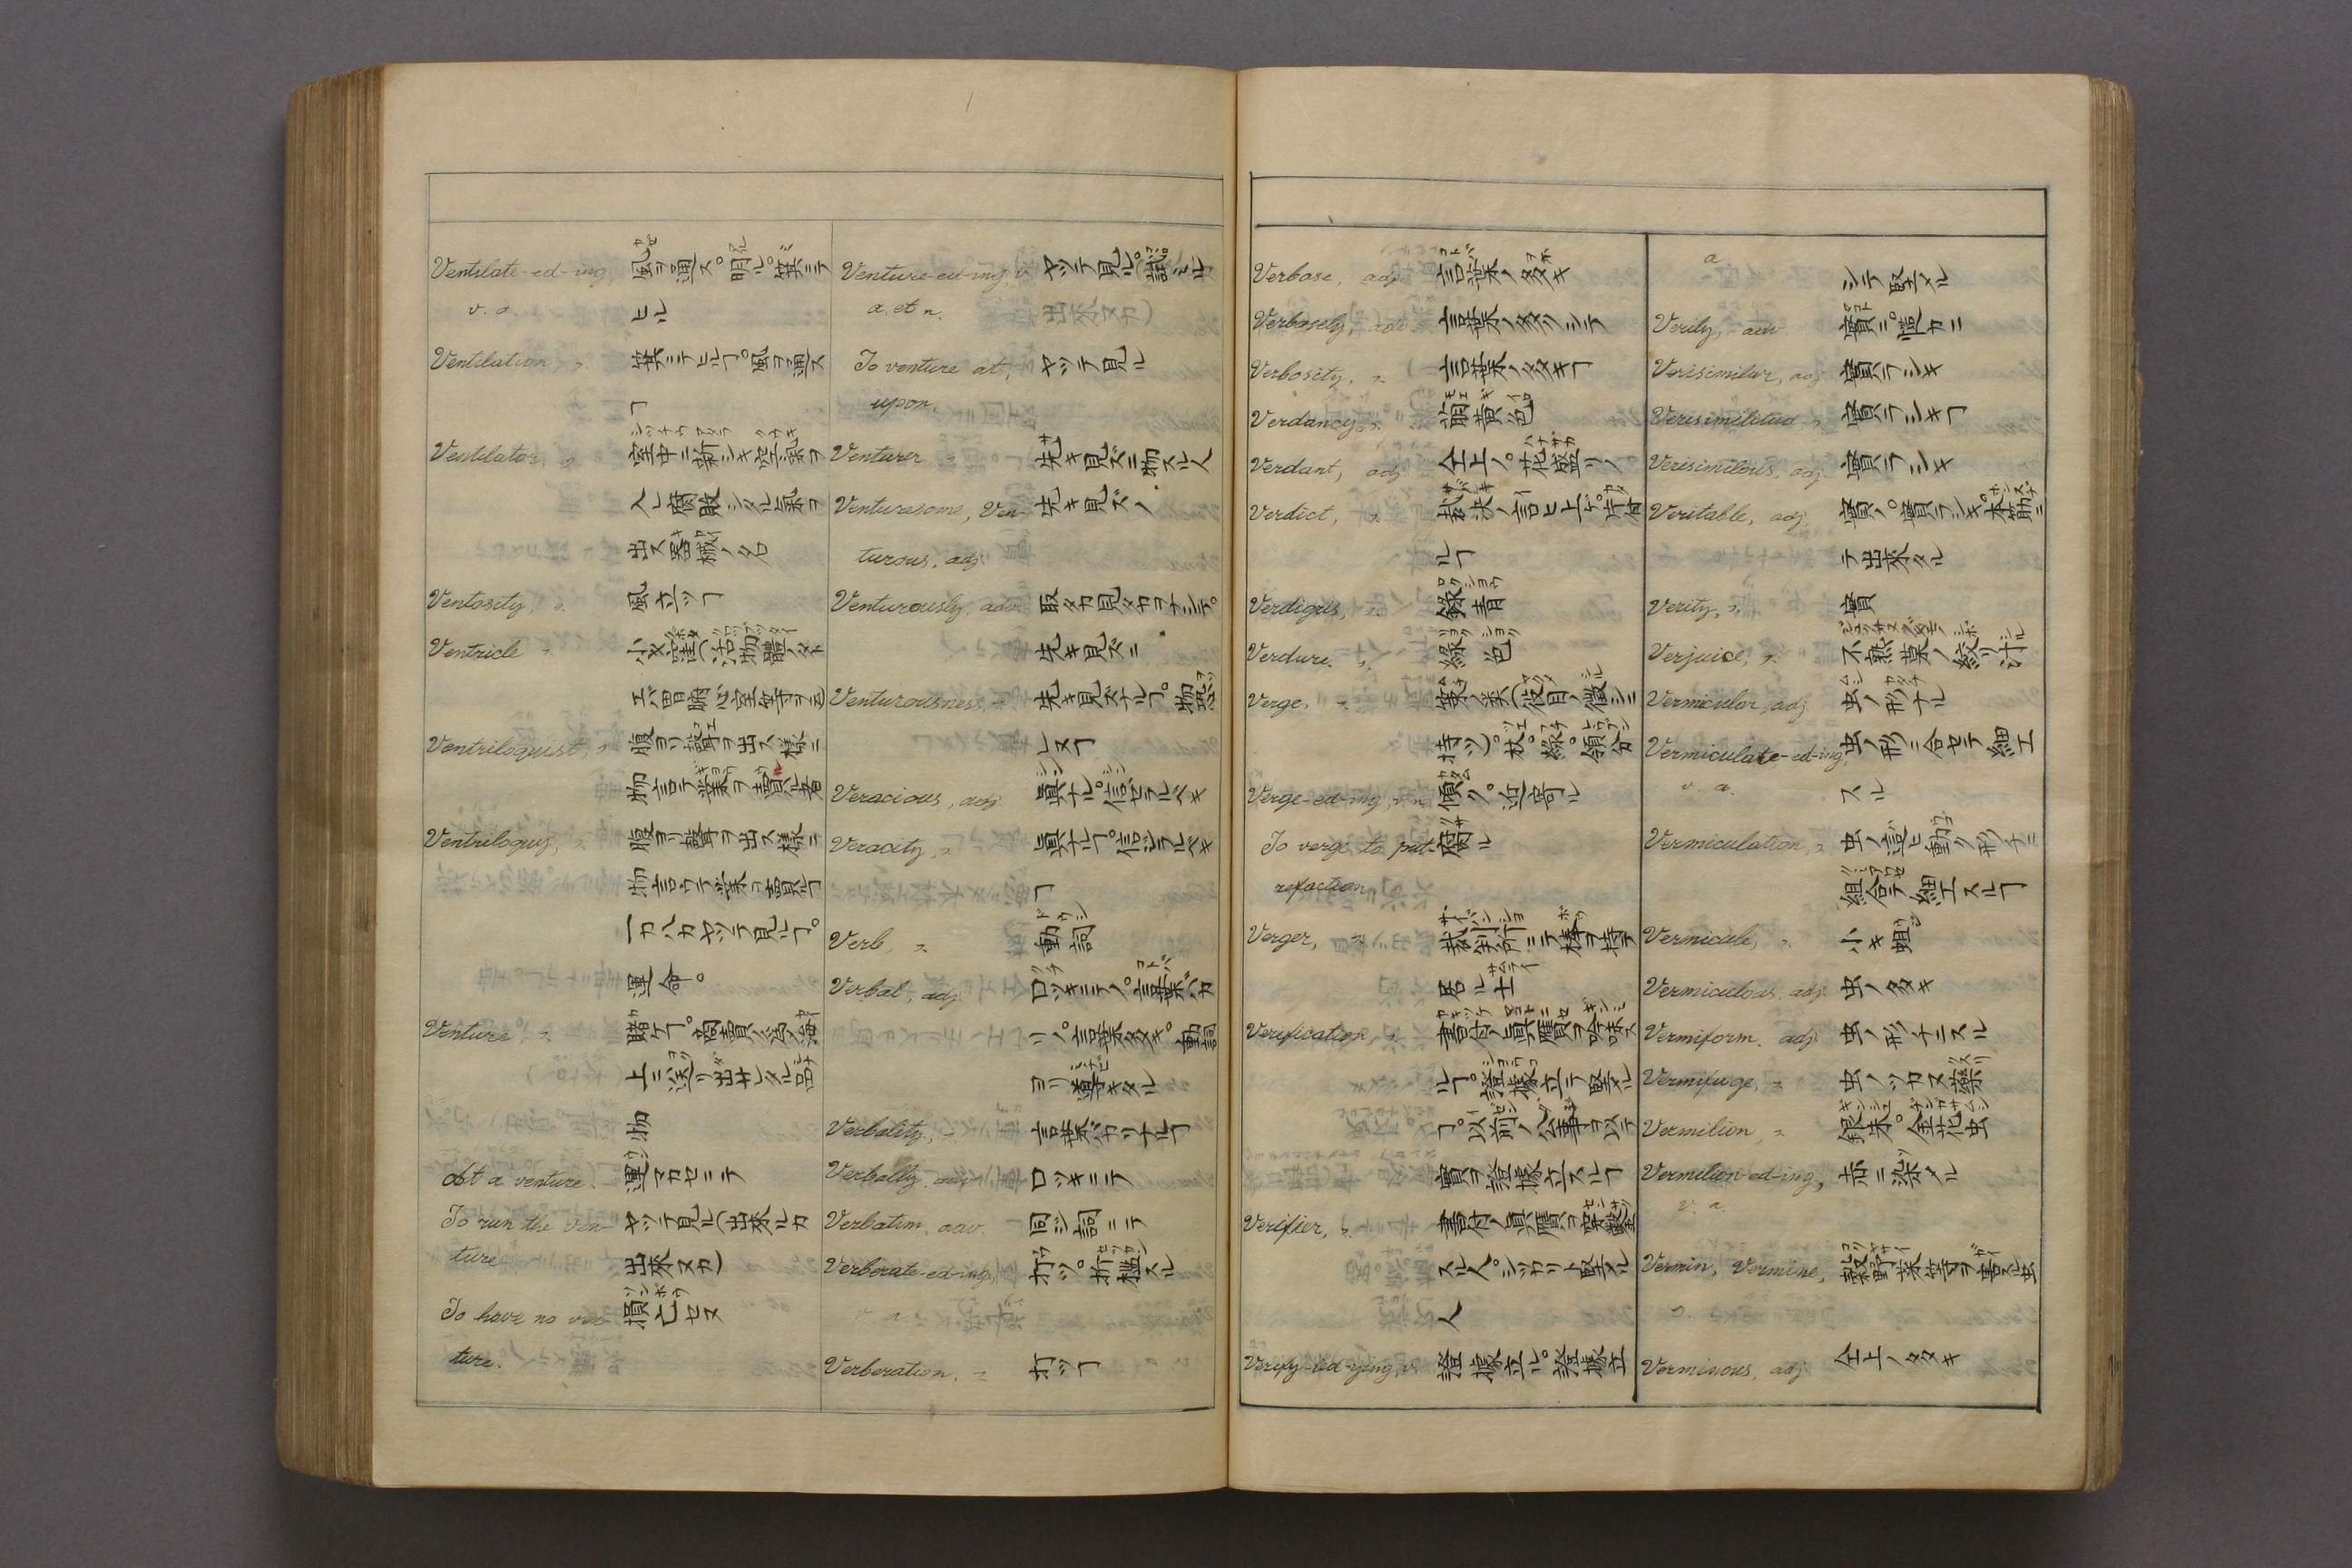 Ventilate-ed-ing, 風ヲ通ス。明ル。箕ニテ
v. a. ヒル
Ventilation, n. 箕ニテヒルヿ。風ヲ通ス
ヿ
Ventilator, n. 室中ニ新シキ空氣ヲ
入レ腐敗シタル氣ヲ
出ス器械ノ名
Ventosity, n. 風立ツヿ
Ventricle n. 小キ窪(活物體ノ
胃腑心室等ヲ云
Ventriloquist, n. 腹ヨリ聲ヲ出ス樣ニ
物言テ業ヲ賣ル者
Ventriloquy, n. 腹ヨリ聲ヲ出ス樣ニ
物言ウテ業ヲ賣ルヿ
一カハカヤツテ見ルヿ。
運命。
Venture n. 賭ケヿ。商賣ノ為ノ海
上ニ送リ出サレタル品
物
At a venture. 運マカセニテ
To run the ven- ヤツテ見ル(出來ルカ
ture 出來ヌカ)
To have no ven- 損亡セヌ
ture.
Venture-ed-ing, v. ヤツテ見ル。試ミル
a. et n. 出來ヌカ)
To venture at, ヤツテ見ル
upon.
Venturer n. 先キ見ズニ物スル人
Venturesome, Ven- 先キ見ズノ
turous, adj.
Venturously, adv. 取タカ見タカヲナシテ。
先キ見ズニ
Venturousness, n. 先キ見ズナルヿ。物恐
レヌヿ
Veracious, adj. 眞ナル。信ゼラルベキ
Veracity, n. 眞ナルヿ。信ゼラルベキ
ヿ
Verb, n. 動詞
Verbal, adj. 口ツキニテノ。言葉バカ
リノ。言葉多キ。動詞
ヨリ導キタル
Verbality, n. 言葉バカリナルヿ
Verbally, adv. 口ツキニテ
Verbatim, adv. 同ジ詞ニテ
Verberate-ed-ing, 打ツ。折檻スル
v. a.
Verberation. n. 打ツヿ
Verbose, adj. 言葉ノ多キ
Verbosely, adv. 言葉ノ多クシテ
Verbosity, n. 言葉ノ多キヿ
Verdancy, n. 萠黄色
Verdant, adj. 仝上ノ。花盛リノ
Verdict, n. 裁決ノ言ヒ上ゲ。片付
ルヿ
Verdigris, n. 緑青
Verdure. n. 緑色
Verge, n. 役目ノ徴シニ
持ツ)。杖。縁。領分
Verge-ed-ing, v. n. 傾ク。近寄ル
To verge to put- 腐ル
refaction.
Verger, n. 裁判所ニテ棒ヲ持テ
居ル士
Verification n. 書付ノ眞贋ヲ吟味ス
ルヿ。證據立テ堅メル
ヿ。以前ノ公事ヲ以テ
實ヲ證據立スルヿ
Verifier, n. 書付ノ眞贋ヲ穿鑿
スル人。シツカリト堅メル
人
Verify-ied-ying, v. 證據立ル。證據立
a. シテ堅メル
Verily, adv. 實ニ。慥カニ
Verisimilar, adj. 實ラシキ
Verisimilitud n. 實ラシキヿ
Verisimilous, adj. 實ラシキ
Veritable, adj. 實ノ。實ラシキ。本筋ニ
テ出來タル
Verity, n. 實
Verjuice, n. 不熟菓ノ絞リ汁
Vermicular, adj. 虫ノ形ナル
Vermiculate-ed-ing, 虫ノ形ニ合セテ細工
v. a. スル
Vermiculation, n. 虫ノ這ヒ動ク形チニ
組合テ細工スルヿ
Vermicule, n. 小キ蛆
Vermiculous, adj. 虫ノ多キ
Vermiform. adj. 虫ノ形チニスル
Vermifuge, n. 虫ノツカヌ藥
Vermilion, n. 銀朱。金花虫
Vermilion-ed-ing, 赤ニ染メル
v. a.
Vermin, Vermine, 穀野菜等ヲ害スル虫
n.
Verminous, adj. 仝上ノ多キ